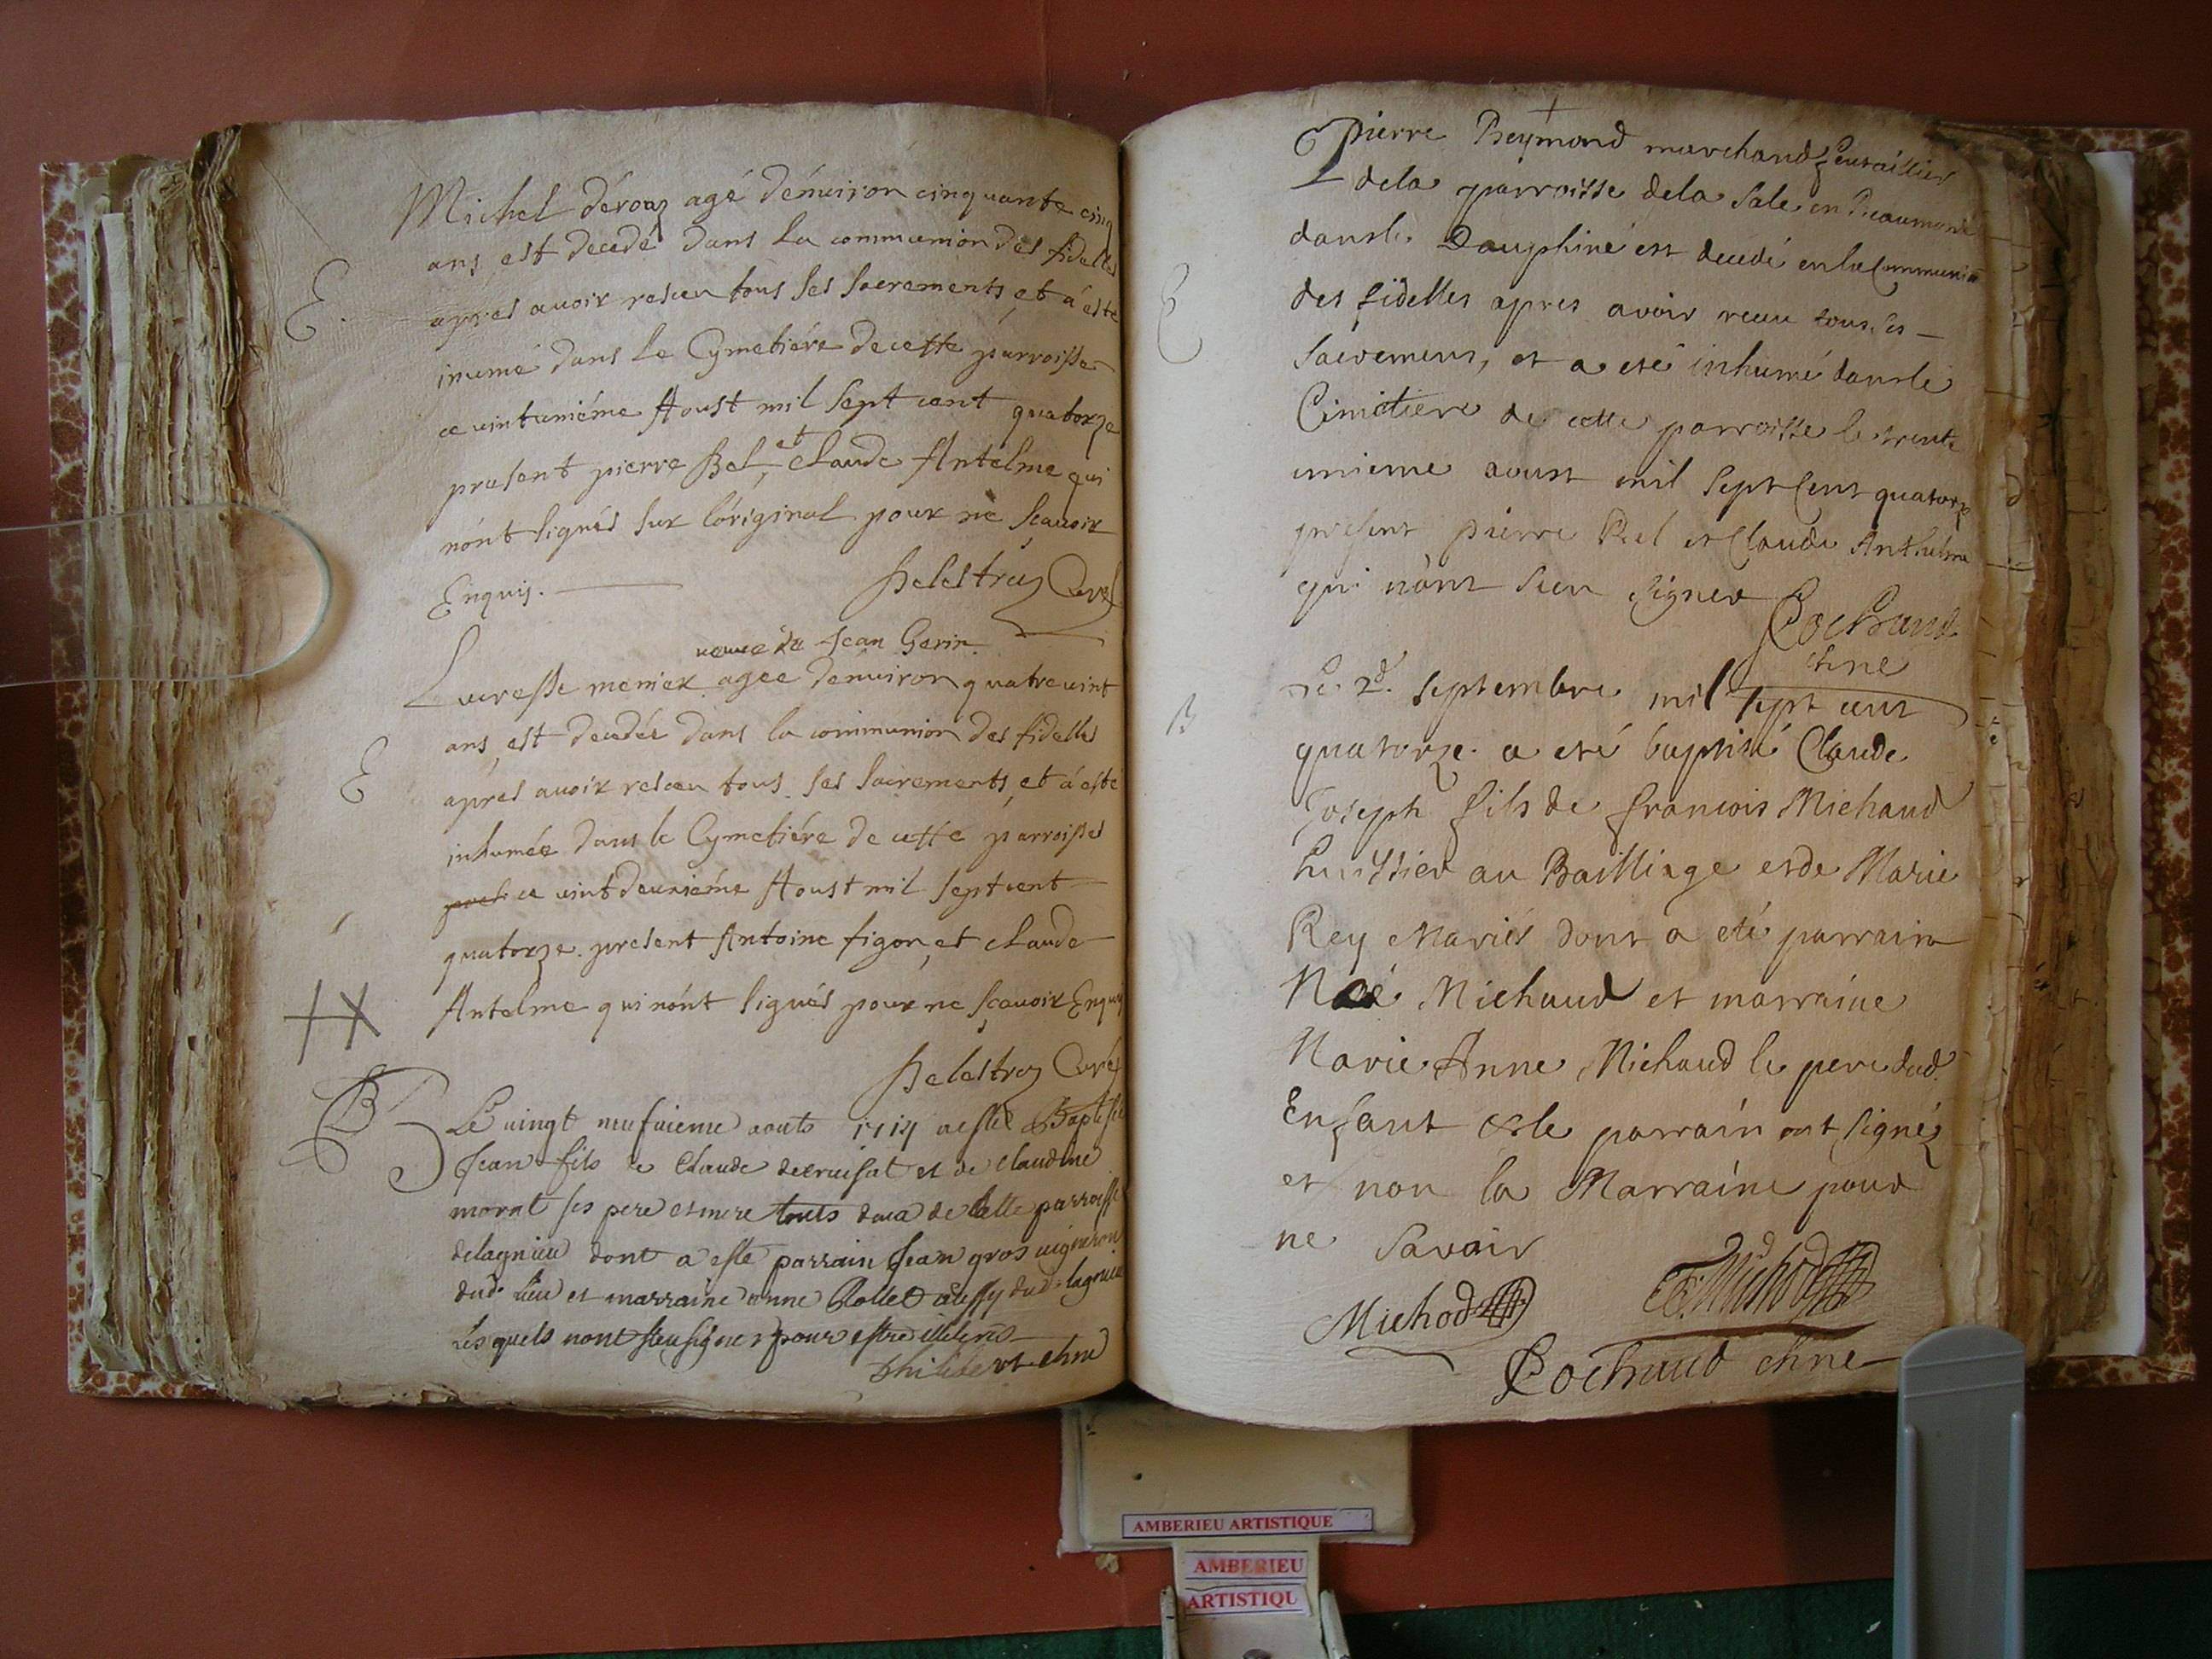 Michel déroaz agé dénuiron cinquante cinq
ans est decedé dans la communion des fidelles
E.
apres auoir resceu tous ses sacrements, et à esté
inumé dans le Cymetiére de cette parroisse
ce uintuniéme Aoust mil sept cent quatorze
present pierre Bel, et claude Antelme qui
nónt signés sur lóriginal pour ne scauoir
Enquis. Curé
ueuue de Jean Gerin
Lucresse menier agee dénuiron quatreuint
ans est decedée dans la communion des fidelles
E
aprés auoir resceu tous ses sacrements, et à esté
inhumée dans le Cymetiére de cette parroisse
ce uintdeuxiéme Aoust mil septcent
quatorze present Antoine figon, et claude
Antelme qui nónt signés pour ne scauoir Enquis
Curé
B
Le uingt neufuieme aouts 1714 a esté Baptisé
Jean fils de Claude decruisat et de claudine
morat ses pere et mere touts deux de laditte parroisse
delagnieu dont a esté parrain Jean gros uigneron
dud. lieu et marraine anne Rollet aussy dud. lagnieu
Lesquels nont sceu signer pour estre illeteres
philibert chne
pierre Reymond marchand
dela parroisse dela Sale en Beaumont
dansle Dauphiné est decedé en la Communion
E
des fidelles apres avoir receu tous ses
sacremens, et a eté inhumé dansle
Cimetiere de cette parroisse le trente
unieme aoust mil sept cent quatorze
present pierre Bel et Claude Anthelme
qui nònt sceu signer Cochund
chne
B
Le 2d. septembre mil sept cent
quatorze a eté baptisé Claude
Joseph fils de francois Michaud
huissier au Bailliage et de Marie
Rey Mariés dont a eté parrain
Noé Michaud et marraine
Marie Anne Michaud le pere dud.
Enfant et le parrain ont signéz
et non la Marraine pour
ne Savoir
Michod F. Michod
Cochund chne
AMBERIEU ARTISTIQUE
AMBERIEU
ARTISTIQU